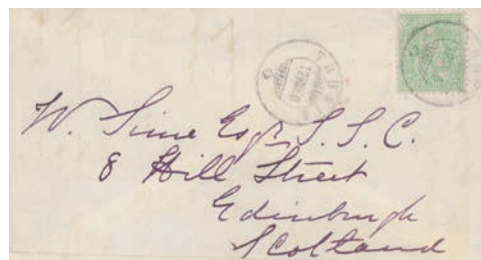 W. Sime Esqr. S. S. C.
8 Hill Street
Edinburgh
Scotland